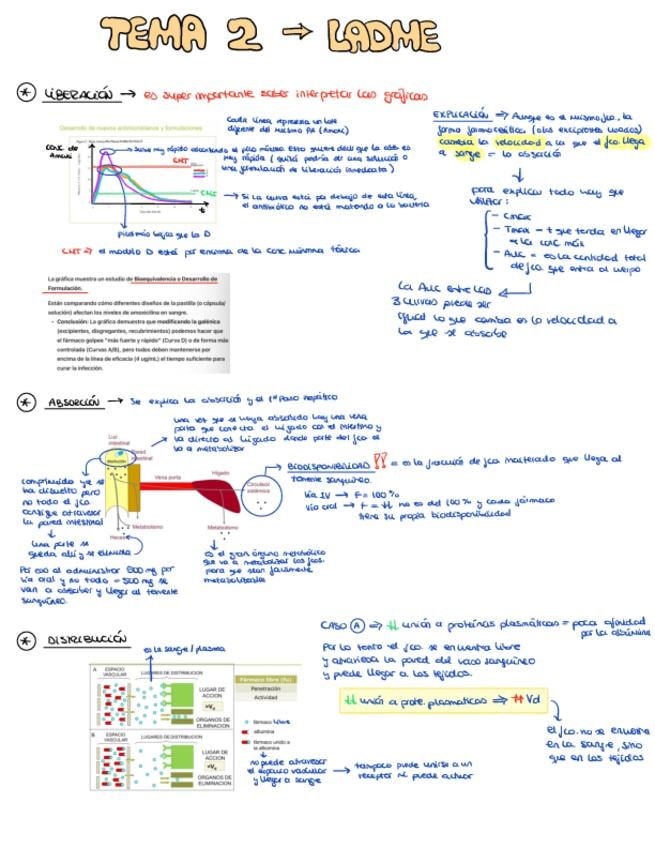 TEMA 2 → LADME
* LIBERACIÓN → es super importante saber interpretar las gráficas
Desarrollo de nuevos antimicrobianos y formulaciones
Cada línea representa un lote
diferente del mismo PA (Amox)
conc de
Amoxi
sube muy rápido alcanzando el pico máximo esto quiere decir que la abs es
muy rápida (quizá podría de una solución o
una formulación de liberación inmediata)
CMT
CMI
→ Si la curva está por debajo de esta línea,
el antibiótico no está matando a la bacteria
t
picos más bajos que la D
CMT ⇒ el modelo D está por encima de la conc mínima tóxica
EXPLICACIÓN ⇒ Aunque es el mismo fco, la
forma farmacéutica (otros excipientes usados)
cambia la velocidad a la que el fco llega
a sangre = la absorción
para explicar todo hay que
utilizar:
- Cmax
- Tmax → t que tarda en llegar
a la conc máx
- AUC = es la cantidad total
de fco que entra al cuerpo
La AUC entre las
3 curvas puede ser
igual lo que cambia es la velocidad a
la que se absorbe
La gráfica muestra un estudio de Bioequivalencia o Desarrollo de
Formulación.
Están comparando cómo diferentes diseños de la pastilla (o cápsula/
solución) afectan los niveles de amoxicilina en sangre.
• Conclusión: La gráfica demuestra que modificando la galénica
(excipientes, disgregantes, recubrimientos) podemos hacer que
el fármaco golpee "más fuerte y rápido" (Curva D) o de forma más
controlada (Curvas A/B), pero todos deben mantenerse por
encima de la línea de eficacia (4 ug/mL) el tiempo suficiente para
curar la infección.
* ABSORCIÓN → Se explica la absorción y el 1er paso hepático
una vez que se haya absorbido hay una vena
porta que conecta el hígado con el intestino y
va directo al hígado donde parte del fco se
va a metabolizar
Luz
intestinal
Pared
intestinal
disolución
Vena porta
Hígado
Circulación
sistémica
Metabolismo
Heces
Metabolismo
comprimido ya se
ha disuelto pero
no todo el fco
consigue atravesar
la pared intestinal
una parte se
queda allí y se elimina
Por eso al administrar 500 mg por
vía oral y no todo = 500 mg se
van a absorber y llegar al torrente
sanguíneo.
es el gran órgano metabólico
que va a metabolizar los fcos.
para que sean fácilmente
metabolizables
BIODISPONIBILIDAD !! = es la fracción de fco inalterado que llega al
torrente sanguíneo.
Vía IV → F = 100%
Vía oral → F = no es del 100% y cada fármaco
tiene su propia biodisponibilidad
* DISTRIBUCIÓN
es la sangre / plasma
A
ESPACIO
VASCULAR
LUGARES DE DISTRIBUCION
LUGAR DE
ACCION
ORGANOS DE
ELIMINACION
B
ESPACIO
VASCULAR
LUGARES DE DISTRIBUCION
LUGAR DE
ACCION
ORGANOS DE
ELIMINACION
Fármaco libre (fu)
Penetración
Actividad
fármaco libre
albúmina
fármaco unido a
la albúmina
no puede atravesar
el espacio vascular
y llegar a sangre
→ tampoco puede unirse a un
receptor ni puede actuar
CASO A ⇒ ↓↓ unión a proteínas plasmáticas = poca afinidad
por la albúmina
Por lo tanto el fco se encuentra libre
y atraviesa la pared del vaso sanguíneo
y puede llegar a los tejidos.
↓↓ unión a prote. plasmaticas ⇒ ↑↑ Vd
el fco. no se encuentra
en la sangre, sino
que en los tejidos